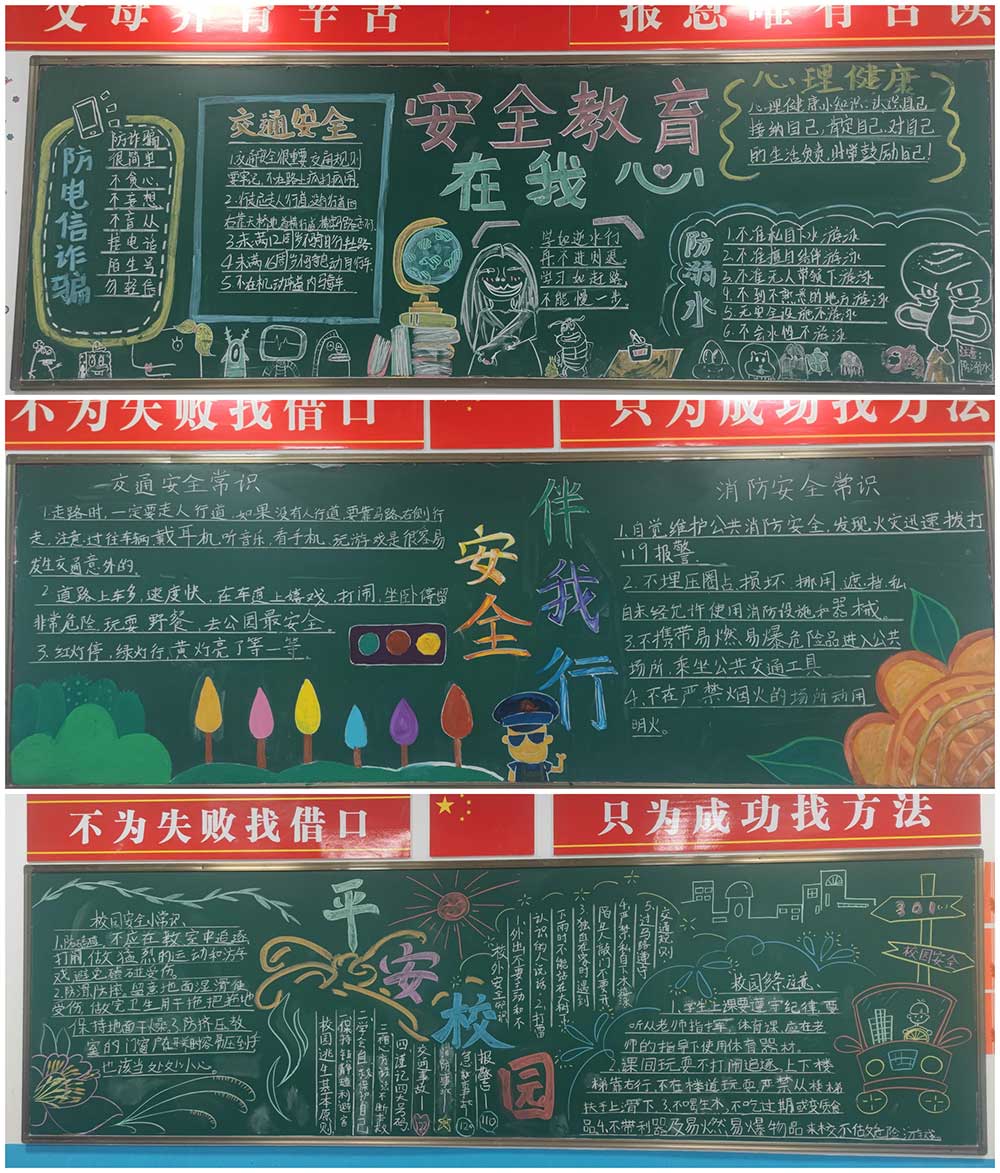 父母养育辛苦
报恩唯有苦读
防电信诈骗
防诈骗
很简单
不贪心
不妄想
不盲从
接电话
陌生号
勿轻信
交通安全
1.交通安全很重要,交通规则
要牢记,不在路上疯打
3.未满12周岁不骑
4.未满16周岁
5.不在机动车道内
安全教育
在我心
学如逆水行
再不进则退
学习如赶路
不能慢一步
心理健康
心理健康小知识、认识自己
接纳自己,肯定自己.对自己
的生活负责,时常鼓励自己!
防溺水
1.不准私自下水游泳
2.不准擅自结伴游泳
3.不准无人带领下游泳
4.不到不熟悉的地方游泳
5.无安全设施不游泳
6.不会水性不游泳
注意:
防溺水
不为失败找借口
只为成功找方法
交通安全常识
1.走路时,一定要走人行道,如果没有人行道,要靠马路右侧行
走,注意过往车辆戴耳机.听音乐.看手机.玩游戏是很容易
发生交通意外的.
2.道路上车多,速度快.在车道上嬉戏,打闹,坐卧停留
非常危险,玩耍 野餐.去公园最安全。
3.红灯停,绿灯行,黄灯亮了等一等
安全
伴我行
消防安全常识
1.自觉维护公共消防安全,发现火灾迅速拨打
119报警.
2.不埋压圈占 损坏 挪用 遮挡私
自未经允许使用消防设施和器械。
3.不携带易燃易爆危险品进入公共
场所,乘坐公共交通工具
4.不在严禁烟火的场所动用
明火。
不为失败找借口
只为成功找方法
校园安全小常识
1.防磕碰 不应在教室中追逐
打闹,做猛烈的运动和游
戏避免磕碰受伤
2.防滑.防摔,留意地面湿滑使
受伤,做完卫生用干拖把拖地
保持地面干燥3.防挤压教
室的门窗户在开关时容易压到手
也该当处处小心。
平安校园
校外安全知识
1.外出不要主动和不
认识的人说话.2.打雷
下雨时不能站在大树下
3.独自在家时遇到
陌生人敲门不要开
4.严禁私自下水游泳
5.过马路遵守
交通规则
校园逃生基本原则
一保持镇静趋利避害
二学会自救保护自己
四谨记四大号码
交通事故
122
120
报警电话
110
301
校园安全
校园务注意
1.学生上课要遵守纪律,要
听从老师指挥,体育课应在老
师的指导下使用体育器材.
2.课间玩耍不打闹追逐,上下楼
梯靠右行,不在楼道玩耍严禁从楼梯
扶手上滑下,3.不喝生水,不吃过期或变质食
品4.不带利器及易燃易爆物品来校不做危险游戏